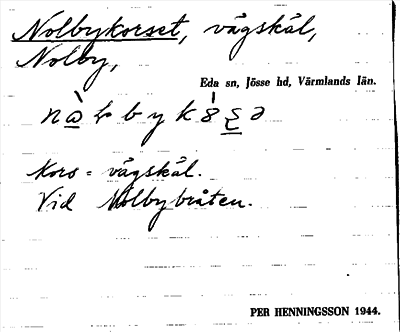 Nolbykorset, vägskäl,
Nolby,
Eda sn, Jösse hd, Värmlands län.
Kors = vägskäl.
Vid Nolbybråten.
PER HENNINGSSON 1944.